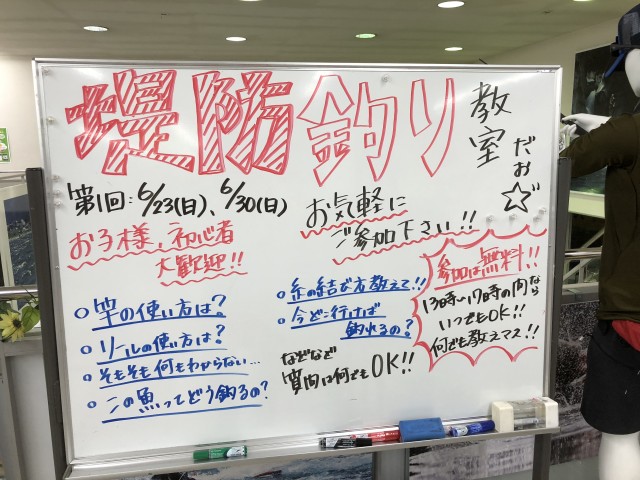 堤防釣り教室だお☆
第1回:6/23(日)、6/30(日)
お気軽に
ご参加下さい!!
お子様、初心者
大歓迎!!
○竿の使い方は?
○リールの使い方は?
○そもそも何もわからない…
○この魚ってどう釣るの?
○糸の結び方教えて!!
○今どこ行けば
釣れるの?
などなど
質問は何でもOK!!
参加は無料!!
13時~17時の間なら
いつでもOK!!
何でも教えマス!!